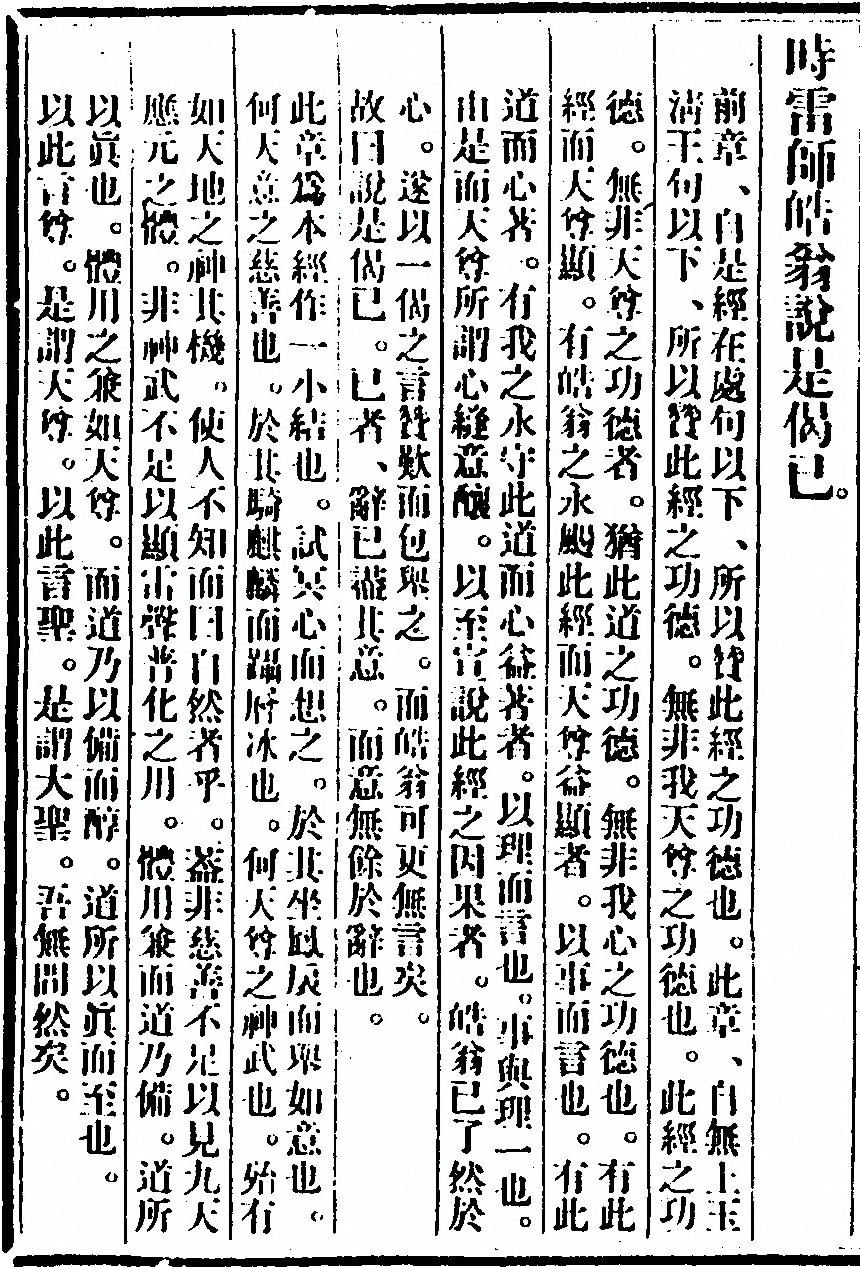 時雷師皓翁說是偈已。
前章、自是經在處句以下、所以贊此經之功德也。此章、自無上玉
淸王句以下、所以贊此經之功德。無非我天尊之功德也。此經之功
德。無非天尊之功德者。猶此道之功德。無非我心之功德也。有此
經而天尊顯。有皓翁之永颺此經而天尊益顯者。以事而言也。有此
道而心著。有我之永守此道而心益著者。以理而言也。事與理一也。
由是而天尊所謂心縫意釀。以至宣說此經之因果者。皓翁已了然於
心。遂以一偈之言贊歎而包舉之。而皓翁可更無言矣。
故曰說是偈已。已者、辭已盡其意。而意無餘於辭也。
此章爲本經作一小結也。試冥心而想之。於其坐鳳扆而舉如意也。
何天意之慈善也。於其騎麒麟而躡層冰也。何天尊之神武也。殆有
如天地之神其機。使人不知而曰自然者乎。蓋非慈善不足以見九天
應元之體。非神武不足以顯雷聲普化之用。體用兼而道乃備。道所
以眞也。體用之兼如天尊。而道乃以備而醇。道所以眞而至也。
以此言尊。是謂天尊。以此言聖。是謂大聖。吾無間然矣。